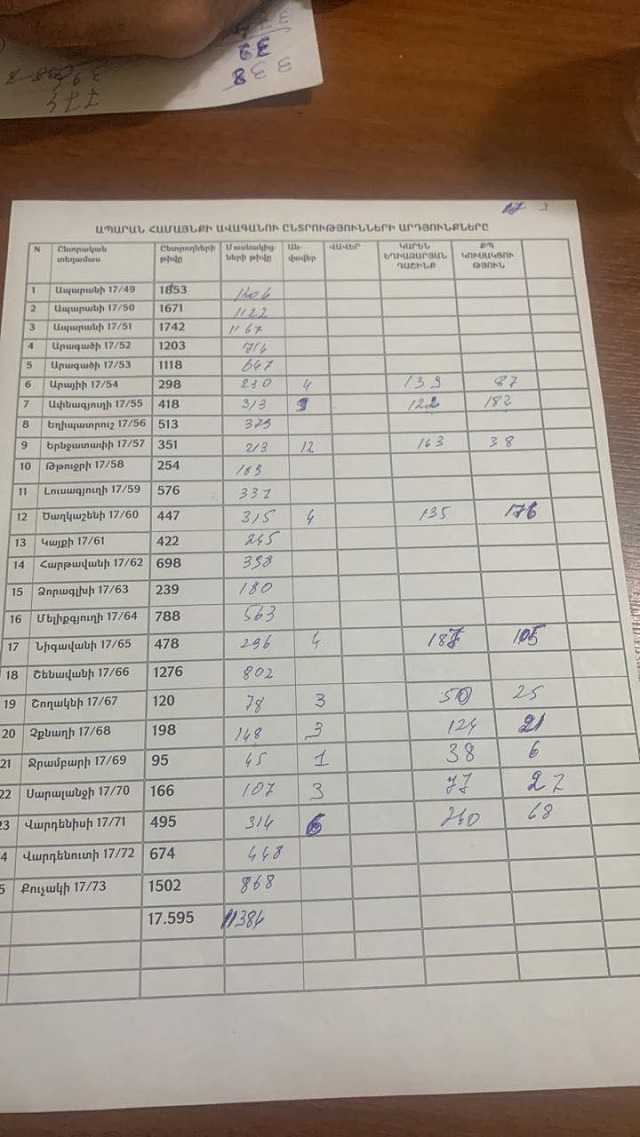 774
3 38
39
17 3
ԱՊԱՐԱՆ ՀԱՄԱՅՆՔԻ ԱՎԱԳԱՆՈՒ ԸՆՏՐՈՒԹՅՈՒՆՆԵՐԻ ԱՐԴՅՈՒՆՔՆԵՐԸ
N Ընտրական տեղամաս Ընտրողների թիվը Մասնակից- ների թիվը Ան- վավեր ՎԱՎԵՐ ԿԱՐԵՆ ԵՂԻԱԶԱՐՅԱՆ ԴԱՇԻՆՔ ՔՊ ԿՈՒՍԱԿՑՈՒ ԹՅՈՒՆ
1 Ապարանի 17/49 1853 1206
2 Ապարանի 17/50 1671 1122
3 Ապարանի 17/51 1742 1167
4 Արագածի 17/52 1203 714
5 Արագածի 17/53 1118 647
6 Արայիի 17/54 298 210 4 139 87
7 Ափնագյուղի 17/55 418 313 9 122 182
8 Եղիպատրուշ 17/56 513 375
9 Երնջատափի 17/57 351 213 12 163 38
10 Թթուջրի 17/58 254 189
11 Լուսագյուղի 17/59 576 337
12 Ծաղկաշենի 17/60 447 315 4 135 176
13 Կայքի 17/61 422 245
14 Հարթավանի 17/62 698 398
15 Ձորագլխի 17/63 239 180
16 Մելիքգյուղի 17/64 788 563
17 Նիգավանի 17/65 478 296 4 187 105
18 Շենավանի 17/66 1276 802
19 Շողակնի 17/67 120 78 3 50 25
20 Չքնաղի 17/68 198 148 3 124 21
21 Ջրամբարի 17/69 95 45 1 38 6
22 Սարալանջի 17/70 166 107 3 77 27
23 Վարդենիսի 17/71 495 314 6 240 68
4 Վարդենուտի 17/72 674 448
5 Քուչակի 17/73 1502 868
17.595 11384